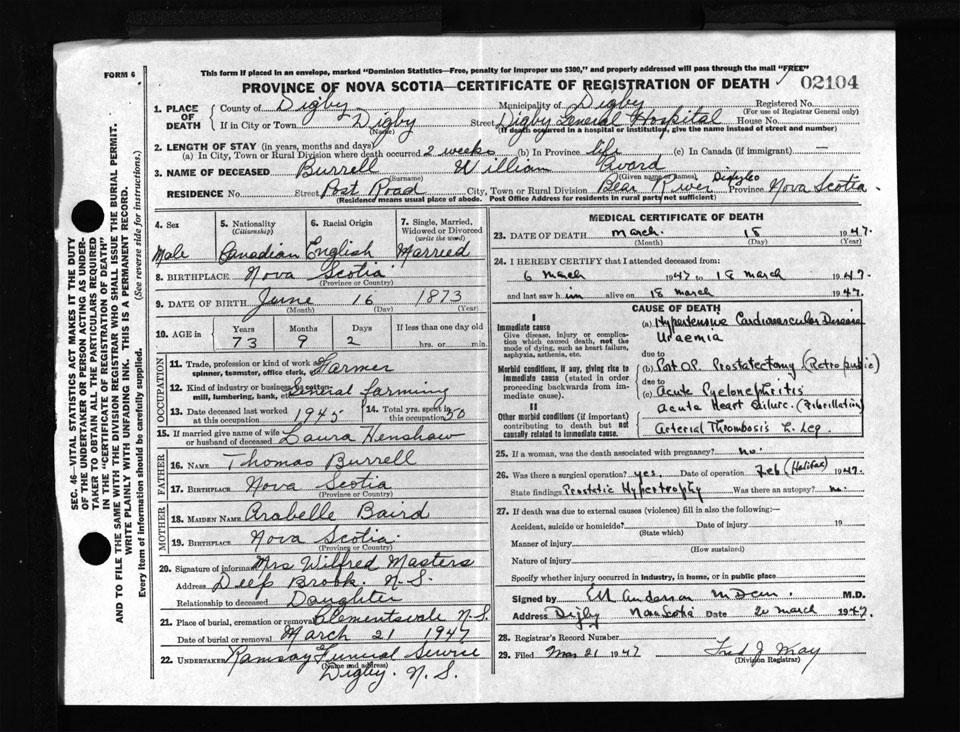 FORM 6
This form if placed in an envelope, marked "Dominion Statistics—Free, penalty for improper use $300," and properly addressed will pass through the mail "FREE"
PROVINCE OF NOVA SCOTIA—CERTIFICATE OF REGISTRATION OF DEATH
02104
1. PLACE OF DEATH
County of Digby Municipality of Digby Registered No.
(For use of Registrar General only)
If in City or Town Digby Street Digby General Hospital House No.
(Name) (If death occurred in a hospital or institution, give the name instead of street and number)
2. LENGTH OF STAY (in years, months and days)
(a) In City, Town or Rural Division where death occurred 2 weeks (b) In Province life (c) In Canada (if immigrant) —
3. NAME OF DECEASED Burrell William Avard
(Surname) (Given name or names)
RESIDENCE No. Street Post Road City, Town or Rural Division Bear River Digby Co Province Nova Scotia.
(Residence means usual place of abode. Post Office Address for residents in rural parts not sufficient)
SEC. 46—VITAL STATISTICS ACT MAKES IT THE DUTY
OF THE UNDERTAKER OR PERSON ACTING AS UNDER-
TAKER TO OBTAIN ALL THE PARTICULARS REQUIRED
IN THE "CERTIFICATE OF REGISTRATION OF DEATH"
AND TO FILE THE SAME WITH THE DIVISION REGISTRAR WHO SHALL ISSUE THE BURIAL PERMIT.
WRITE PLAINLY WITH UNFADING INK. THIS IS A PERMANENT RECORD.
Every item of Information should be carefully supplied. (See reverse side for instructions.)
4. Sex
Male
5. Nationality
(Citizenship)
Canadian
6. Racial Origin
English
7. Single, Married,
Widowed or Divorced
(write the word)
Married
8. BIRTHPLACE Nova Scotia
(Province or Country)
9. DATE OF BIRTH June 16 1873
(Month) (Day) (Year)
10. AGE in
Years Months Days If less than one day old
73 9 2 hrs. or min.
OCCUPATION
11. Trade, profession or kind of work as Farmer
spinner, teamster, office clerk, etc.
12. Kind of industry or business, as cotton-
mill, lumbering, bank, etc. General farming
13. Date deceased last worked
at this occupation 1945
14. Total yrs. spent in
this occupation 50
15. If married give name of wife
or husband of deceased Laura Henshaw
FATHER
16. NAME Thomas Burrell
17. BIRTHPLACE Nova Scotia
(Province or Country)
MOTHER
18. MAIDEN NAME Arabelle Baird
19. BIRTHPLACE Nova Scotia.
(Province or Country)
20. Signature of informant Mrs Wilfred Masters
Address Deep Brook. N.S.
Relationship to deceased Daughter
21. Place of burial, cremation or removal Clementsvale N.S.
Date of burial or removal March 21 1947
22. UNDERTAKER Ramsay Funeral Service
(Name and address)
Digby. N.S.
MEDICAL CERTIFICATE OF DEATH
23. DATE OF DEATH March. 18 1947.
(Month) (Day) (Year)
24. I HEREBY CERTIFY that I attended deceased from:
6 March 1947 to 18 March 1947.
and last saw him alive on 18 March 1947.
CAUSE OF DEATH
I
Immediate cause
Give disease, injury or complication which caused death, not the mode of dying, such as heart failure, asphyxia, asthenia, etc.
(a) Hypertensive Cardiovascular Disease
Uraemia
due to
Morbid conditions, if any, giving rise to immediate cause (stated in order proceeding backwards from immediate cause).
(b) Post OP. Prostatectomy (Retropubic)
due to
(c) Acute Pyelonephritis
II
Other morbid conditions (if important) contributing to death but not causally related to immediate cause.
Acute Heart Failure. (Fibrillation)
Arterial Thrombosis L. Leg
25. If a woman, was the death associated with pregnancy? no.
26. Was there a surgical operation? yes. Date of operation Feb (Halifax) 1947.
State findings Prostatic Hypertrophy Was there an autopsy? no.
27. If death was due to external causes (violence) fill in also the following:—
Accident, suicide or homicide? Date of injury 19
(State which)
Manner of injury
(How sustained)
Nature of injury
Specify whether injury occurred in industry, in home, or in public place
Signed by M.D.
Address Digby Nova Scotia Date 20 March 1947.
28. Registrar's Record Number
29. Filed Mar 21 1947 Fred J. May
(Division Registrar)